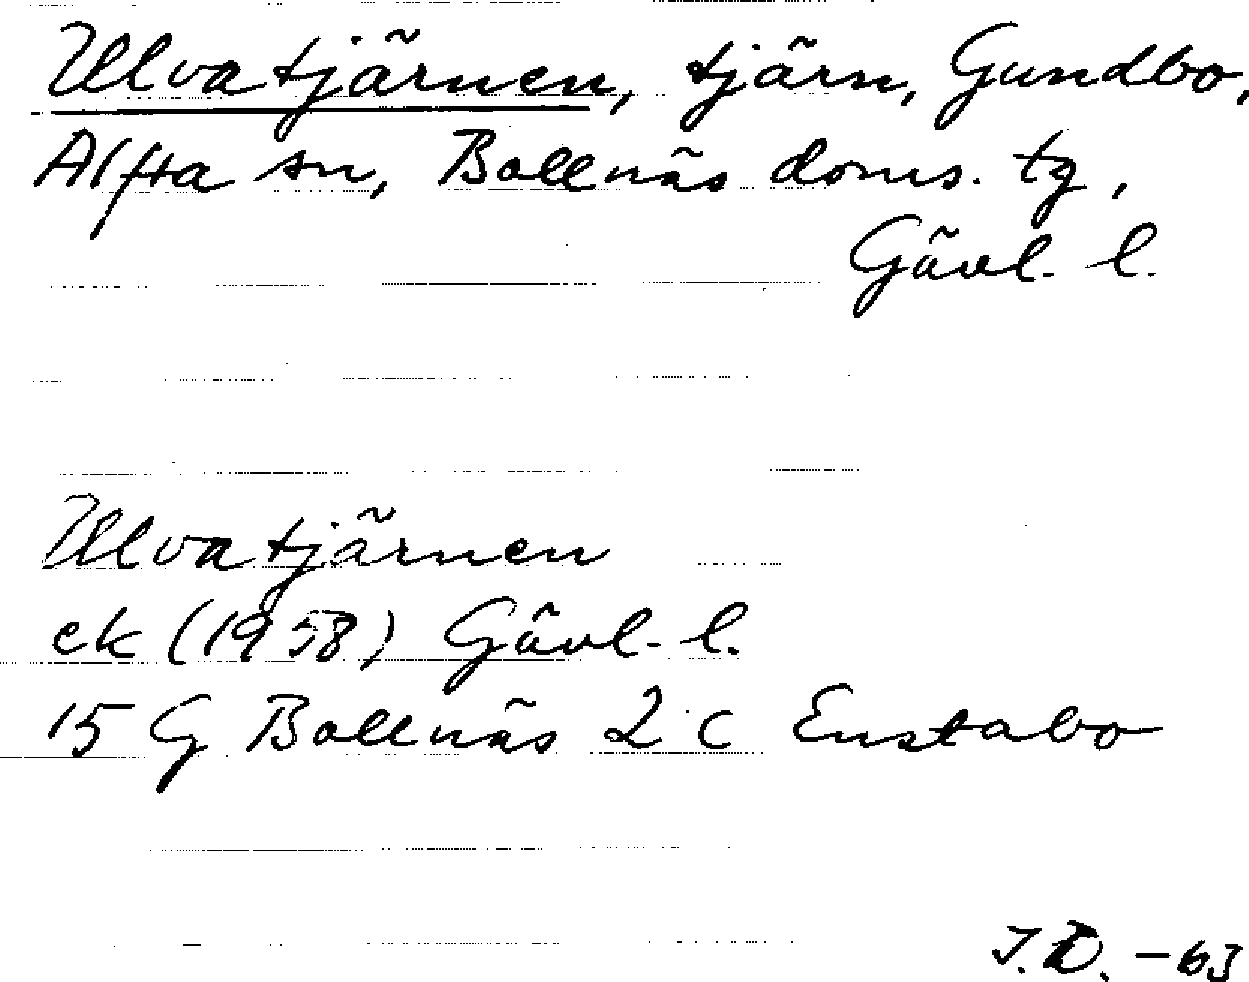 Ulvatjärnen, tjärn, Gundbo,
Alfta sn, Bollnäs doms. tg,
Gävl. l.
Ulvatjärnen
ek (1958) Gävl. l.
15 G Bollnäs 2 c Eustabo
J.D. -63